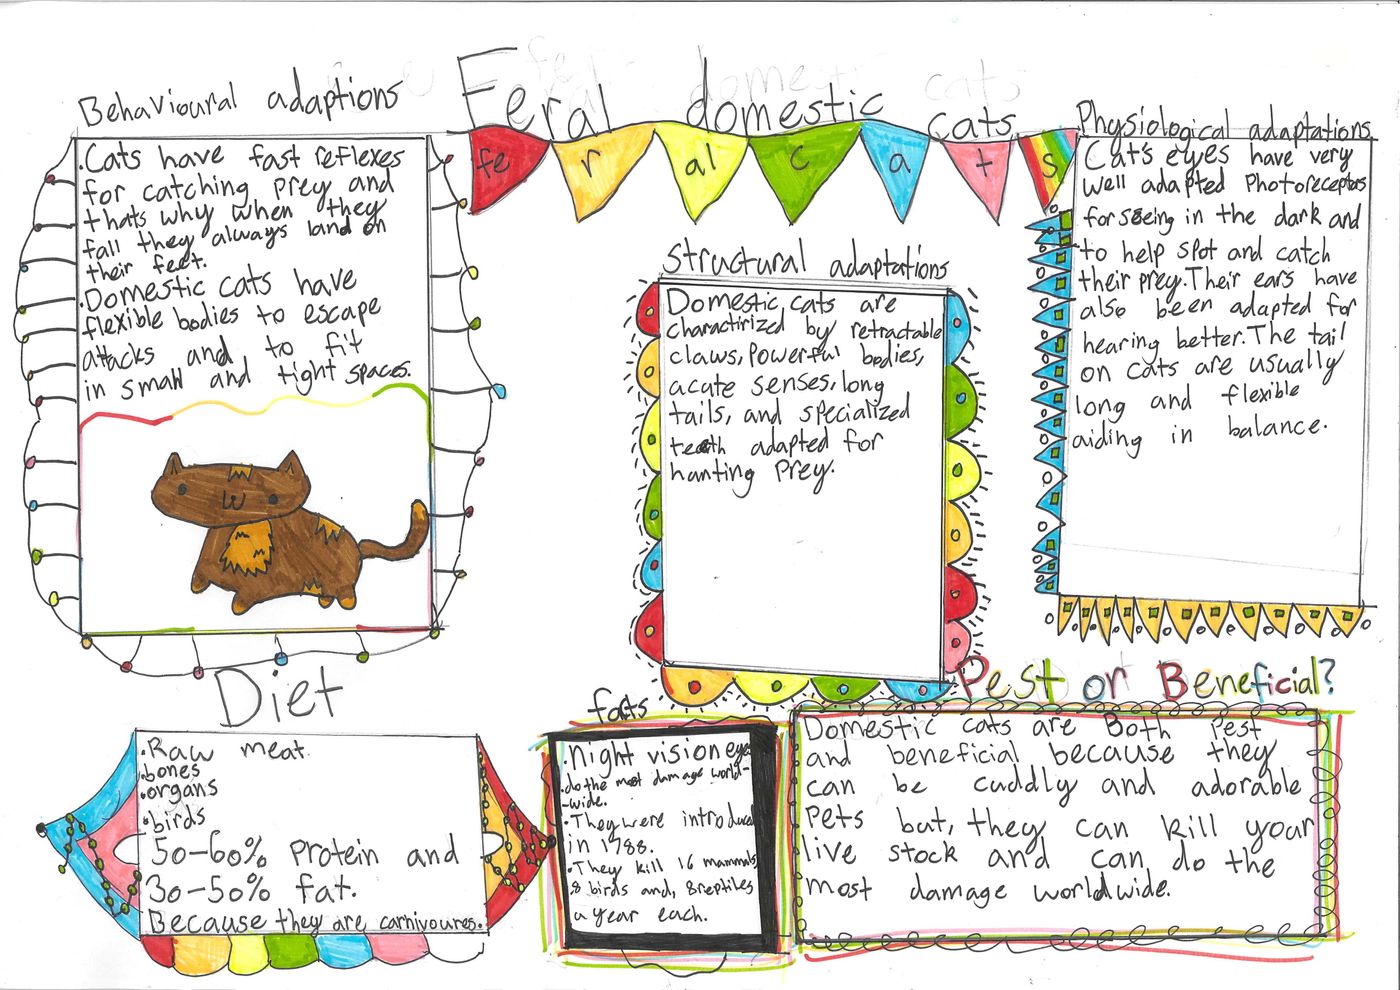 Feral domestic cats
fe r al c a t s
Behavioural adaptions
.Cats have fast reflexes
for catching prey and
thats why when they
fall they always land on
their feet.
.Domestic cats have
flexible bodies to escape
attacks and to fit
in small and tight spaces.
Structural adaptations
Domestic cats are
charactirized by retractable
claws, Powerful bodies,
acute senses, long
tails, and specialized
teeth adapted for
hanting Prey.
Physiological adaptations
Cat's eyes have very
well adapted Photoreceptors
for seeing in the dark and
to help spot and catch
their prey. Their ears have
also been adapted for
hearing better. The tail
on cats are usually
long and flexible
aiding in balance.
Diet
.Raw meat.
.bones
.organs
.birds
50-60% Protein and
30-50% fat.
Because they are carnivoures.
facts
.Night vision eyes
.do the most damage world-
-wide.
.They were introduced
in 1788.
.They kill 16 mammals
.8 birds and, 8 reptiles
a year each.
Pest or Beneficial?
Domestic cats are Both Pest
and beneficial because they
can be cuddly and adorable
Pets but, they can kill your
live stock and can do the
most damage worldwide.